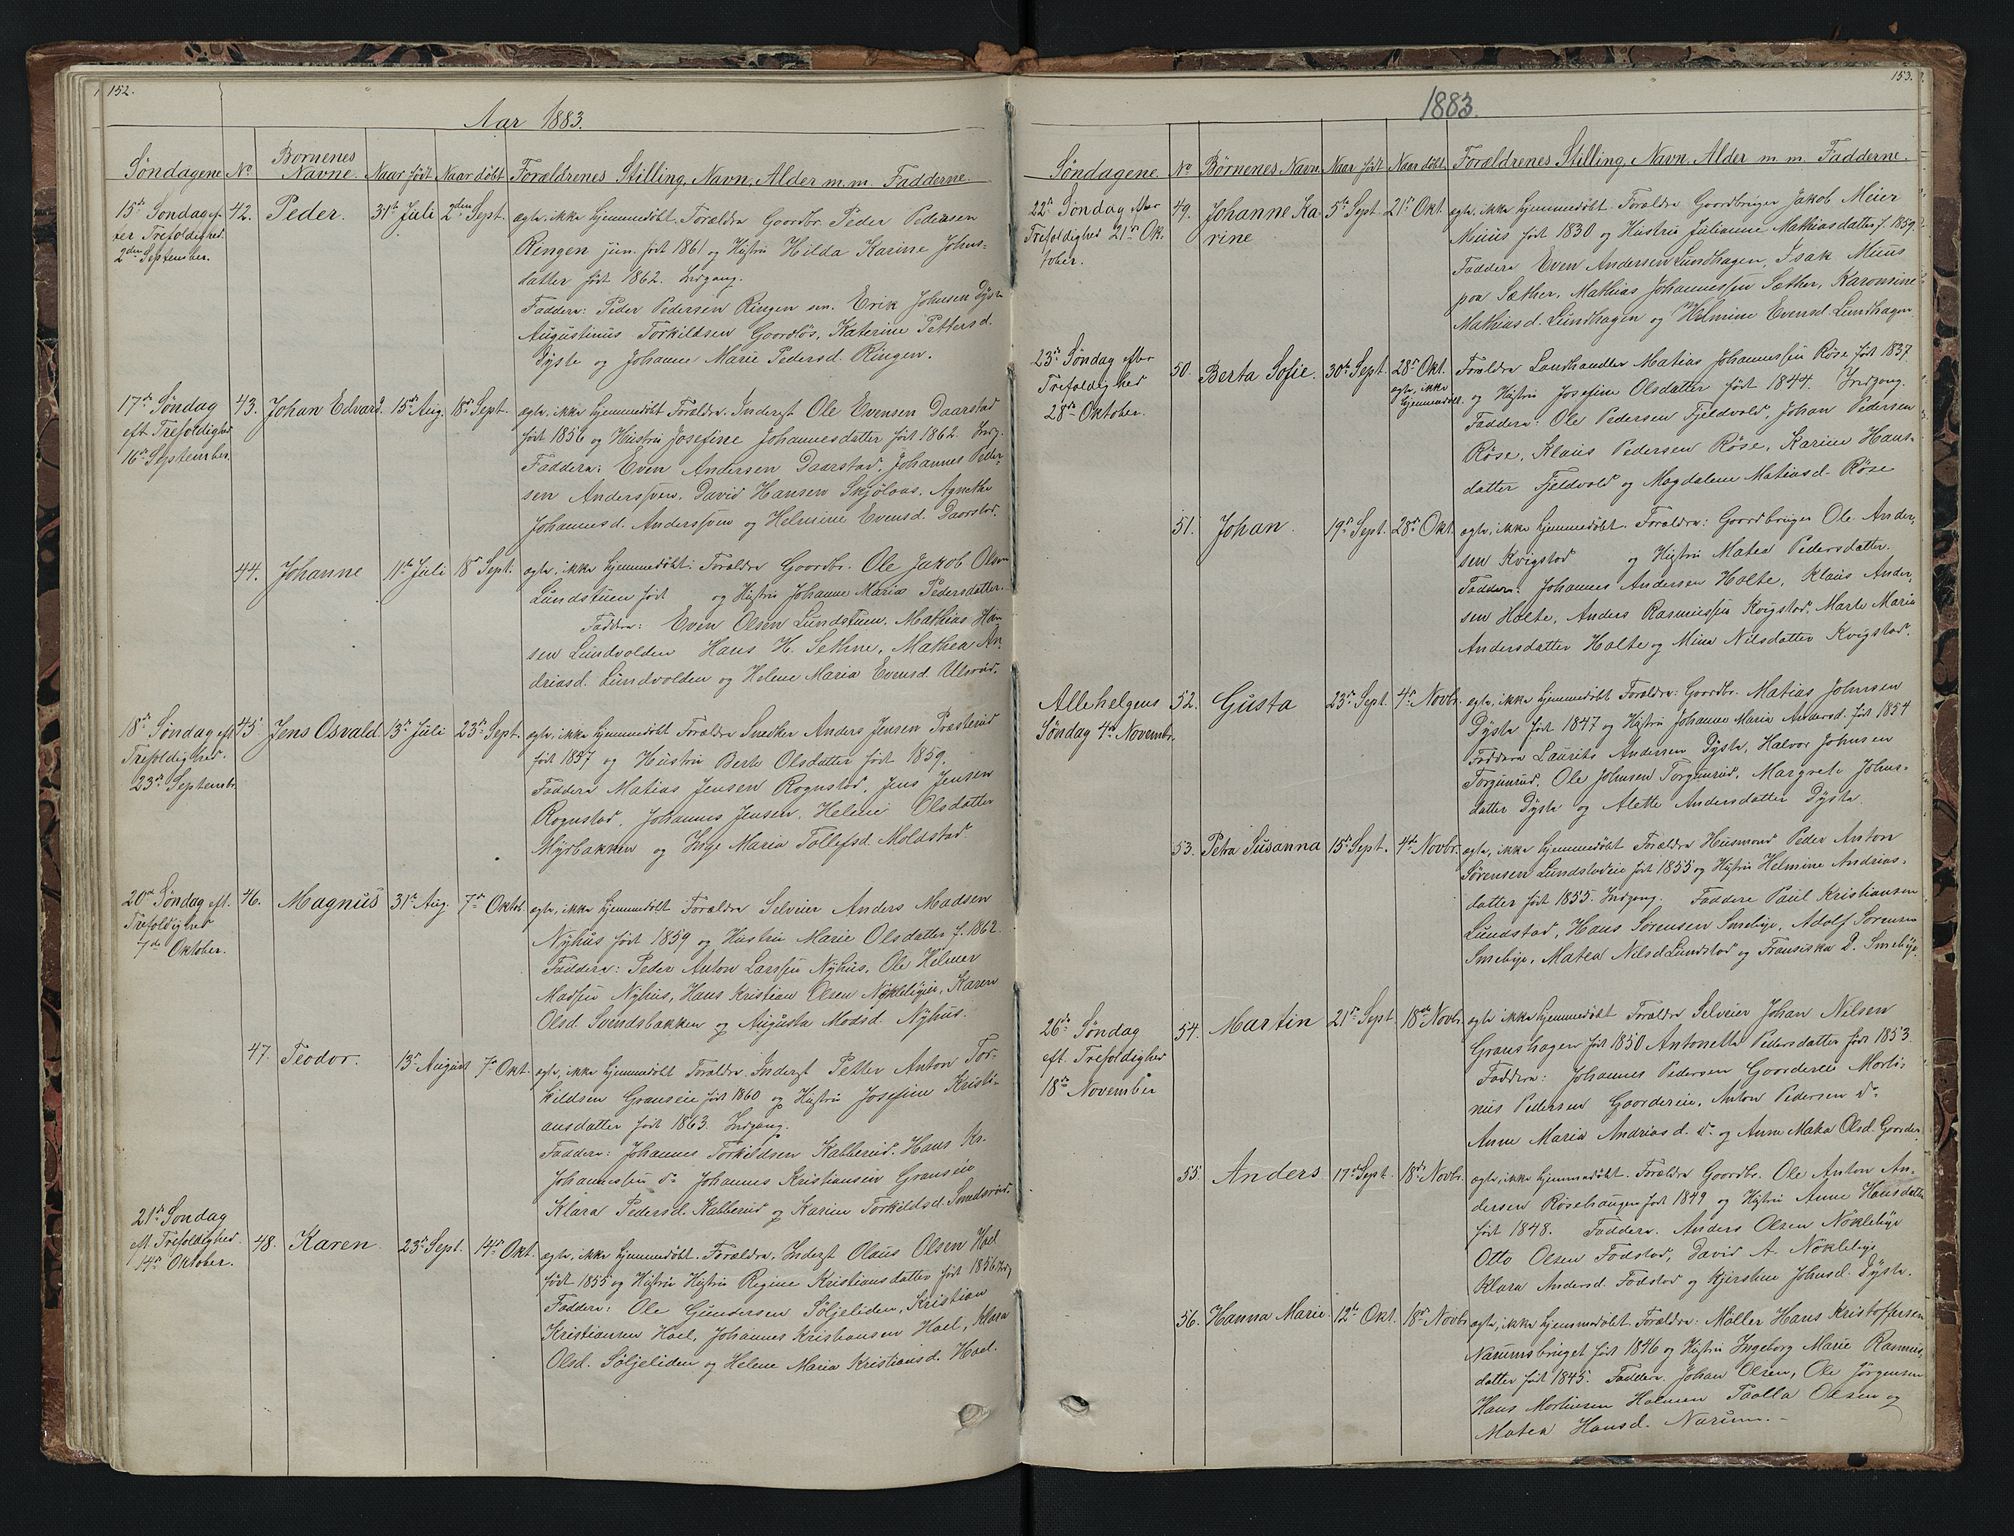 152.
Aar 1883.
Søndagene No Børnenes Navne. Naar født Naar døbt Forældrenes Stilling, Navn, Alder m. m. Fadderne.
15de Søndag ef-
ter Trefoldighed
2den September.
42. Peder. 31te Juli 2den Sept.
ægte, ikke hjemmedøbt. Forældre Goordbr. Peder Pedersen
Ringen jun. født 1861 og Hustru Hilda Karine Johns-
datter født 1862. Indgang.
Faddere: Peder Pedersen Ringen sen. Erik Johnsen Dyste
Augustinus Torkildsen Goordlös, Katerine Pettersd.
Dyste og Johanne Marie Pedersd. Ringen.
17de Søndag
eft. Trefoldighed
16de September.
43. Johan Edvard 15de Aug. 18de Sept.
ægte, ikke hjemmedøbt Forældre: Inderst Ole Evensen Daarstad
født 1856 og Hustru Josefine Johannesdatter født 1862. Indg.
Faddere: Even Andersen Daarstad, Johannes Peder-
sen Anderssveen, David Hansen Skjölaas, Agnethe
Johannesd. Anderssveen og Helmine Evensd. Daarstad.
44. Johanne 11te Juli 18de Sept.
ægte, ikke hjemmedøbt. Forældre Goordbr. Ole Jakob Olsen
Lundstuen født og Hustru Johanne Maria Pedersdatter.
Faddere: Even Olsen Lundstuen, Mathias Han-
sen Lundvolden Hans H. Sethne, Mathea An-
driasd. Lundvolden og Helene Maria Evensd. Ulsrud.
18de Søndag eft
Trefoldighed.
23de Septembr.
45. Jens Osvald. 13de Juli 23de Sept.
ægte, ikke hjemmedøbt Forældre Snedker Anders Jensen Præsterud
født 1857 og Hustru Berte Olsdatter født 1859.
Faddere Matias Jensen Rognstad, Jens Jensen
Rognstad, Johannes Jensen, Helene Olsdatter
Myrbakken og Inge Maria Tollefsd. Moldstad
20de Søndag eft.
Trefoldighed
7de Oktober.
46. Magnus 31te Aug. 7de Oktob.
ægte, ikke hjemmedøbt Forældre Selveier Anders Madsen
Nyhus født 1859 og Hustru Marie Olsdatter f. 1862.
Faddere: Peder Anton Larssen Nyhus, Ole Helmer
Madsen Nyhus, Hans Kristian Olsen Nökleligeie, Karen
Olsd. Svendsbakken og Augusta Madsd. Nyhus.
47. Teodor. 13de August 7de Okt.
ægte, ikke hjemmedøbt Forældre. Inderst Petter Anton Tor-
kildsen Granseie født 1860 og Hustru Josefine Kristi-
ansdatter født 1863. Indgang.
Faddere: Johannes Torkildsen Kabberud. Hans Kr.
Johannessen do Johannes Kristiansen Granseie
Klara Pedersd. Kabberud og Karine Torkildsd. Smedsrud.
21de Søndag
eft. Trefoldighed.
14de Oktober.
48. Karen. 23de Sept. 14de Okt.
ægte, ikke hjemmedøbt. Forældre, Inderst Olaus Olsen Hoel
født 1855 og Hustru Hustru Regine Kristiansdatter født 1856 Indg
Faddere: Ole Gundersen Söljeliden, Kristian
Kristiansen Hoel, Johannes Kristiansen Hoel, Klara
Olsd. Söljeliden og Helene Maria Kristiansd. Hoel.
153.
1883.
Søndagene No Børnenes Navn Naar født Naar døbt Forældrenes Stilling, Navn, Alder m. m. Fadderne.
22de Søndag efter
Trefoldighed 21de Ok-
tober.
49. Johanne Ka-
rine 5te Sept. 21de Okt.
ægte, ikke hjemmedøbt. Forældre Goordbruger Jakob Meier
Muus født 1830 og Hustru Julianne Mathiasdatter f. 1859.
Faddere Even Andersen Lundhagen, Isak Muus
paa Sæther, Mathias Johannessen Sæther, Karonine
Mathiasd. Lundhagen og Helmine Evensd. Lundhagen
23de Søndag efter
Trefoldighed
28de Oktober.
50. Berta Sofie. 30te Sept. 28de Okt.
ægte, ikke
hjemmedøbt.
Forældre Landhandler Matias Johannessen Röse født 1837.
og Hustru Josefine Olsdatter født 1844. Indgang.
Faddere: Ole Pedersen Fjeldvold, Johan Pedersen
Röse, Klaus Pedersen Röse, Karine Hans-
datter Fjeldvold og Magdalene Matiasd. Röse
51. Johan. 19de Sept. 28de Okt.
ægte, ikke hjemmedøbt. Forældre: Goordbruger Ole Ander-
sen Kvigstad og Hustru Matea Pedersdatter.
Faddere: Johannes Andersen Holte, Klaus Ander-
sen Holte, Anders Rasmussen Kvigstad, Marte Maria
Andersdatter Holte og Mina Nilsdatter Kvigstad.
Allehelgens
Søndag 4de Novembr.
52. Gusta 23de Sept. 4de Novbr.
ægte, ikke hjemmedøbt Forældre: Goordbr. Matias Johnsen
Dyste født 1847 og Hustru Johanne Maria Andersd. født 1854
Faddere Laurits Andersen Dyste, Halvor Johnsen
Torgunrud, Ole Johnsen Torgunrud, Margrete Johns-
datter Dyste og Alette Andersdatter Dyste.
53. Petra Susanna 15de Sept. 4de Novbr.
ægte, ikke hjemmedøbt Forældre Husmand Peder Anton
Sørensen Lundstadeie født 1855 og Hustru Helmine Andrias-
datter født 1855. Indgang. Faddere Paul Kristiansen
Lundstad, Hans Sørensen Smebye, Adolf Sørensen
Smebye, Matea Nilsd. Lundstad og Fransiska P. Smebye.
26de Søndag
eft. Trefoldighed
18de November
54. Martin 21de Sept. 18de Novbr.
ægte ikke hjemmedøbt Forældre Selveier Johan Nilsen
Granshagen født 1850 Antonette Pedersdatter født 1853.
Faddere: Johannes Pedersen Goordereie Marti-
nus Pedersen Goordereie, Anton Pedersen do.
Anne Maria Andrias d. do. og Anne Mata Olsd. Goorder-
55. Anders 17de Sept. 18de Novbr.
ægte, ikke hjemmedøbt. Forældre Goordbr. Ole Anton An-
dersen Rosehaugen født 1849 og Hustru Anne Hansdatter
født 1848. Faddere. Anders Olsen Nöklebye
Otto Olsen Fodstad, David A. Nöklebye.
Klara Andersd. Fodstad og Kjerstine Johnsd. Dyste.
56. Hanna Marie 12te Okt. 18de Novbr.
ægte, ikke hjemmedøbt. Forældre: Møller Hans Kristoffersen
Narumsbruget født 1846 og Hustru Ingeborg Marie Rasmus-
datter født 1845. Faddere. Johan Olsen, Ole Jörgensen
Hans Mortinsen Holmen Paolla Olsen og
Matea Hansd. Narum.-